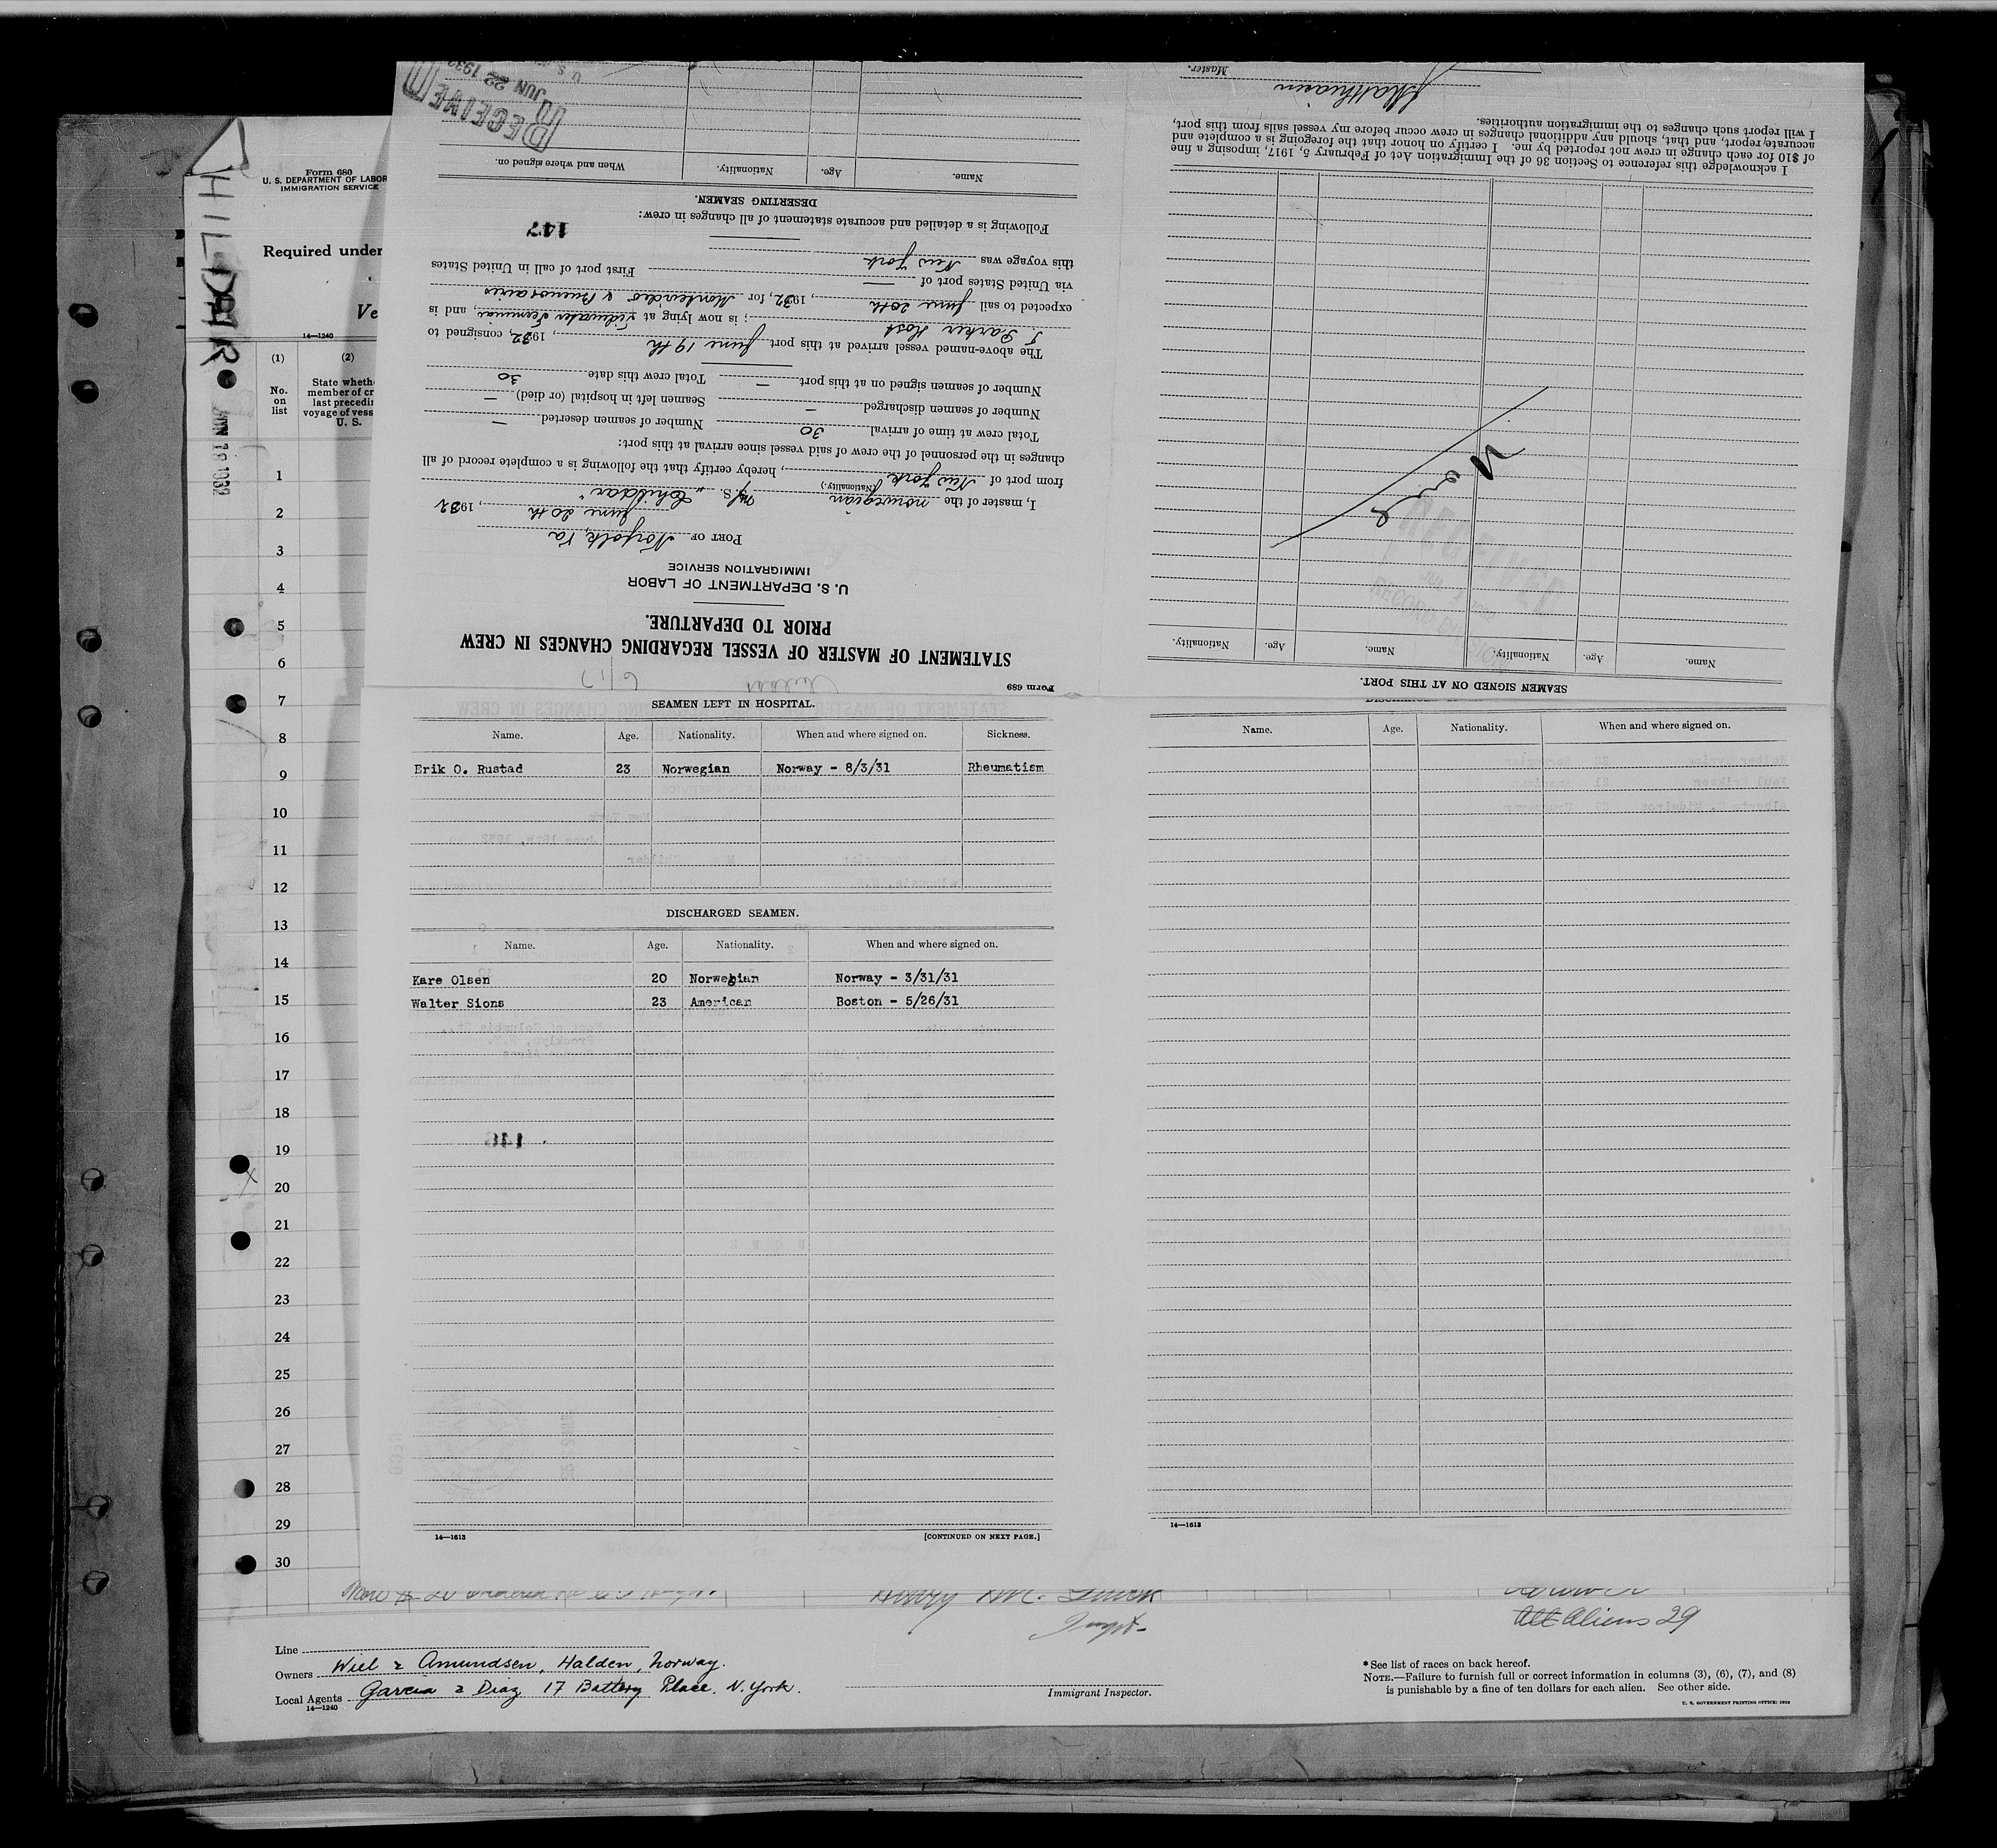 HILDAR
JUN 18 1932
Form 680
U. S. DEPARTMENT OF LABOR
IMMIGRATION SERVICE
Required under
Ve
14—1240
(1)
(2)
No.
on
list
State wheth
member of cr
last precedin
voyage of vess
U. S.
1
2
3
4
5
6
7
8
9
10
11
12
13
14
15
16
17
18
19
20
21
22
23
24
25
26
27
28
29
30
Form 689
STATEMENT OF MASTER OF VESSEL REGARDING CHANGES IN CREW
PRIOR TO DEPARTURE.
U. S. DEPARTMENT OF LABOR
IMMIGRATION SERVICE
PORT OF Norfolk, Va
June 20th, 1932
I, master of the norwegian M/S. "Childar"
(Nationality.)
from port of New York, hereby certify that the following is a complete record of all
changes in the personnel of the crew of said vessel since arrival at this port:
Total crew at time of arrival 30 Number of seamen deserted —
Number of seamen discharged — Seamen left in hospital (or died) —
Number of seamen signed on at this port — Total crew this date 30
The above-named vessel arrived at this port June 19th, 1932, consigned to
T. Parker Host; is now lying at Tidewater Terminal, and is
expected to sail June 20th, 1932, for Montevideo & Buenosaires
via United States port of — First port of call in United States
this voyage was New York
147
Following is a detailed and accurate statement of all changes in crew:
DESERTING SEAMEN.
Name. Age. Nationality. When and where signed on.
RECEIVED
JUN 22 1932
U. S.
SEAMEN SIGNED ON AT THIS PORT.
Name. Age. Nationality. Name. Age. Nationality.
None
RECEIVED
RECORD DIVISION
I acknowledge this reference to Section 36 of the Immigration Act of February 5, 1917, imposing a fine
of $10 for each change in crew not reported by me. I certify on honor that the foregoing is a complete and
accurate report, and that, should any additional changes in crew occur before my vessel sails from this port,
I will report such changes to the immigration authorities.
Master.
SEAMEN LEFT IN HOSPITAL.
Name. Age. Nationality. When and where signed on. Sickness.
Erik O. Rustad 23 Norwegian Norway - 8/3/31 Rheumatism
DISCHARGED SEAMEN.
Name. Age. Nationality. When and where signed on.
Kare Olsen 20 Norwegian Norway - 3/31/31
Walter Sions 23 American Boston - 5/26/31
146
14—1613
[CONTINUED ON NEXT PAGE.]
Name. Age. Nationality. When and where signed on.
14—1613
All Aliens 29
Line
Owners Wiel & Amundsen, Halden, Norway.
Local Agents Garcia & Diaz 17 Battery Place, N. York.
14—1240
Immigrant Inspector.
* See list of races on back hereof.
NOTE.—Failure to furnish full or correct information in columns (3), (6), (7), and (8)
is punishable by a fine of ten dollars for each alien. See other side.
U. S. GOVERNMENT PRINTING OFFICE: 1929